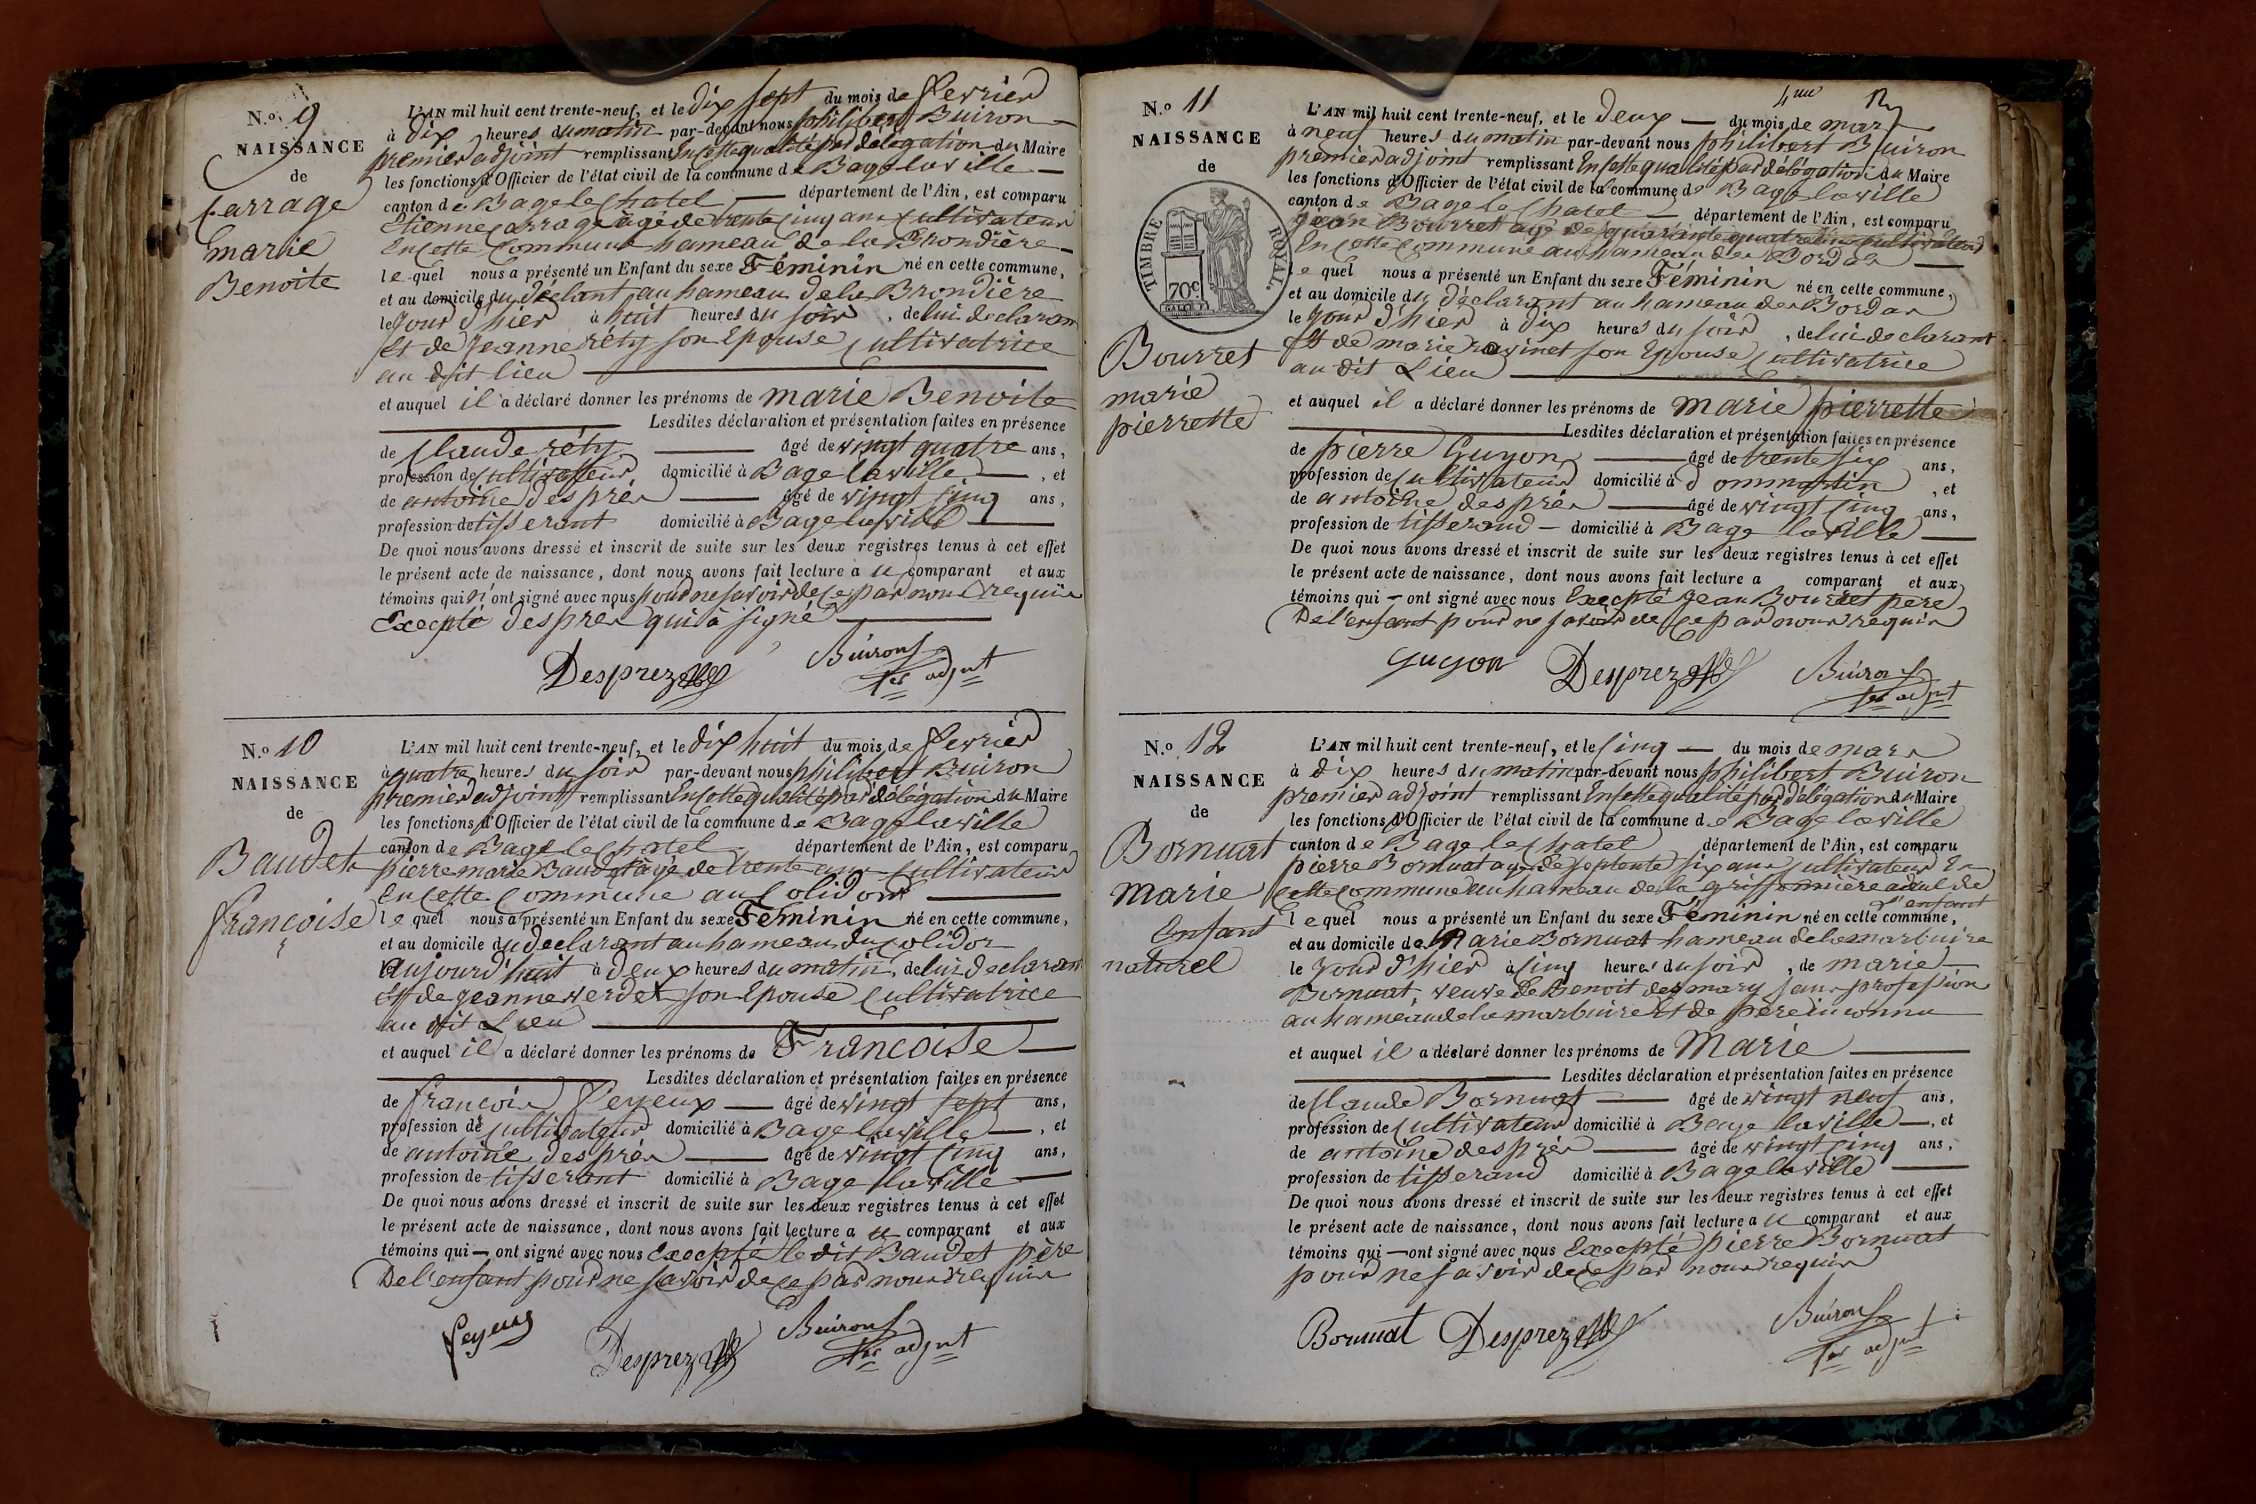 N.o 9
NAISSANCE
de
Carrage
marie
Benoite
L'AN mil huit cent trente-neuf, et le Dix sept du mois de fevrier
à Dix heures du matin par-devant nous philibert Buiron
premier adjoint remplissant En cette qualité par délégation du Maire
les fonctions d'Officier de l'état civil de la commune de Bage la ville
canton de Bage le Chatel département de l'Ain, est comparu
Etienne Carrage âgé de trente Cinq ans Cultivateur
En cette Commune hameau de la Brondière
le quel nous a présenté un Enfant du sexe Féminin né en cette commune,
et au domicile du déclant au hameau de la Brondière
le jour d'hier à huit heures du soir, de lui declarant
Et de jeanne réty son Epouse Cultivatrice
au dit lieu
et auquel il a déclaré donner les prénoms de marie Benoite
Lesdites déclaration et présentation faites en présence
de Claude réty âgé de vingt quatre ans,
profession de Cultivateur domicilié à Bage la ville, et
de antoine després âgé de vingt Cinq ans,
profession de tisserant domicilié à Bage la ville
De quoi nous avons dressé et inscrit de suite sur les deux registres tenus à cet effet
le présent acte de naissance, dont nous avons fait lecture a u comparant et aux
témoins qui n'ont signé avec nous pour ne savoir de ce par nous requis
Excepté despres qui à signé
Desprez Buiron
1er adjnt
N.o 10
NAISSANCE
de
Baudet
françoise
L'AN mil huit cent trente-neuf, et le dix huit du mois de fevrier
à quatre heures du soir par-devant nous philibert Buiron
premier adjoint remplissant En cette qualité par délégation du Maire
les fonctions d'Officier de l'état civil de la commune de Bage la ville
canton de Bage le Chatel département de l'Ain, est comparu
pierre marie Baudet âgé de trente ans Cultivateur
En cette Commune au Colidor
le quel nous a présenté un Enfant du sexe Féminin né en cette commune,
et au domicile du declarant au hameau du Colidor
aujourd'huit à deux heures du matin, de lui declarant
Et de jeanne verdet son Epouse Cultivatrice
au dit Lieu
et auquel il a déclaré donner les prénoms de Francoise
Lesdites déclaration et présentation faites en présence
de francois feyeux âgé de vingt sept ans,
profession de Cultivateur domicilié à Bage la ville, et
de antoine després âgé de vingt Cinq ans,
profession de tisserant domicilié à Bage la ville
De quoi nous avons dressé et inscrit de suite sur les deux registres tenus à cet effet
le présent acte de naissance, dont nous avons fait lecture a u comparant et aux
témoins qui — ont signé avec nous Excepté le dit Baudet père
De l'enfant pour ne savoir de ce par nous requis
feyeux Desprez Buiron
1er adjnt
4me
N.o 11
NAISSANCE
de
TIMBRE ROYAL.
70c
Bourret
marie
pierrette
L'AN mil huit cent trente-neuf, et le deux du mois de mars
à neuf heures du matin par-devant nous philibert Buiron
premier adjoint remplissant En cette qualité par délégation du Maire
les fonctions d'Officier de l'état civil de la commune de Bage la ville
canton de Bage le Chatel département de l'Ain, est comparu
jean Bourret agé de quarante quatre ans cultivateur
En cette Commune au hameau des Bordes
le quel nous a présenté un Enfant du sexe Féminin né en cette commune,
et au domicile du déclarant au hameau des Bordes
le jour d'hier à dix heures du soir, de lui declarant
Et de marie ravinet son Epouse Cultivatrice
au dit Lieu
et auquel il a déclaré donner les prénoms de Marie pierrette
Lesdites déclaration et présentation faites en présence
de pierre Guyon âgé de trente six ans,
profession de Cultivateur domicilié à dommartin, et
de antoine després âgé de vingt Cinq ans,
profession de tisserand domicilié à Bage la ville
De quoi nous avons dressé et inscrit de suite sur les deux registres tenus à cet effet
le présent acte de naissance, dont nous avons fait lecture a comparant et aux
témoins qui — ont signé avec nous Excepté jean Bourret père
De l'enfant pour ne savoir de ce par nous requis
guyon Desprez Buiron
1er adjnt
N.o 12
NAISSANCE
de
Bornuat
marie
Enfant
naturel
L'AN mil huit cent trente-neuf, et le Cinq du mois de mars
à dix heures du matin par-devant nous philibert Buiron
premier adjoint remplissant En cette qualité par délégation du Maire
les fonctions d'Officier de l'état civil de la commune de Bage la ville
canton de Bage le Chatel département de l'Ain, est comparu
pierre Bornuat agé de septente six ans cultivateur En
cette commune au hameau de la griffonnière aieul de
l'enfant
le quel nous a présenté un Enfant du sexe Féminin né en cette commune,
et au domicile de Marie Bornuat hameau de la marbuire
le jour d'hier à Cinq heures du soir, de marie
Bornuat, veuve de Benoit desmary sans profession
au hameau de la marbuire Et de père inconnu
et auquel il a déclaré donner les prénoms de Marie
Lesdites déclaration et présentation faites en présence
de Claude Bornuat âgé de vingt neuf ans,
profession de Cultivateur domicilié à Bage la ville, et
de antoine després âgé de vingt Cinq ans,
profession de tisserand domicilié à Bage la ville
De quoi nous avons dressé et inscrit de suite sur les deux registres tenus à cet effet
le présent acte de naissance, dont nous avons fait lecture a u comparant et aux
témoins qui — ont signé avec nous Excepté pierre Bornuat
pour ne savoir de ce par nous requis
Bornuat Desprez Buiron
1er adjnt